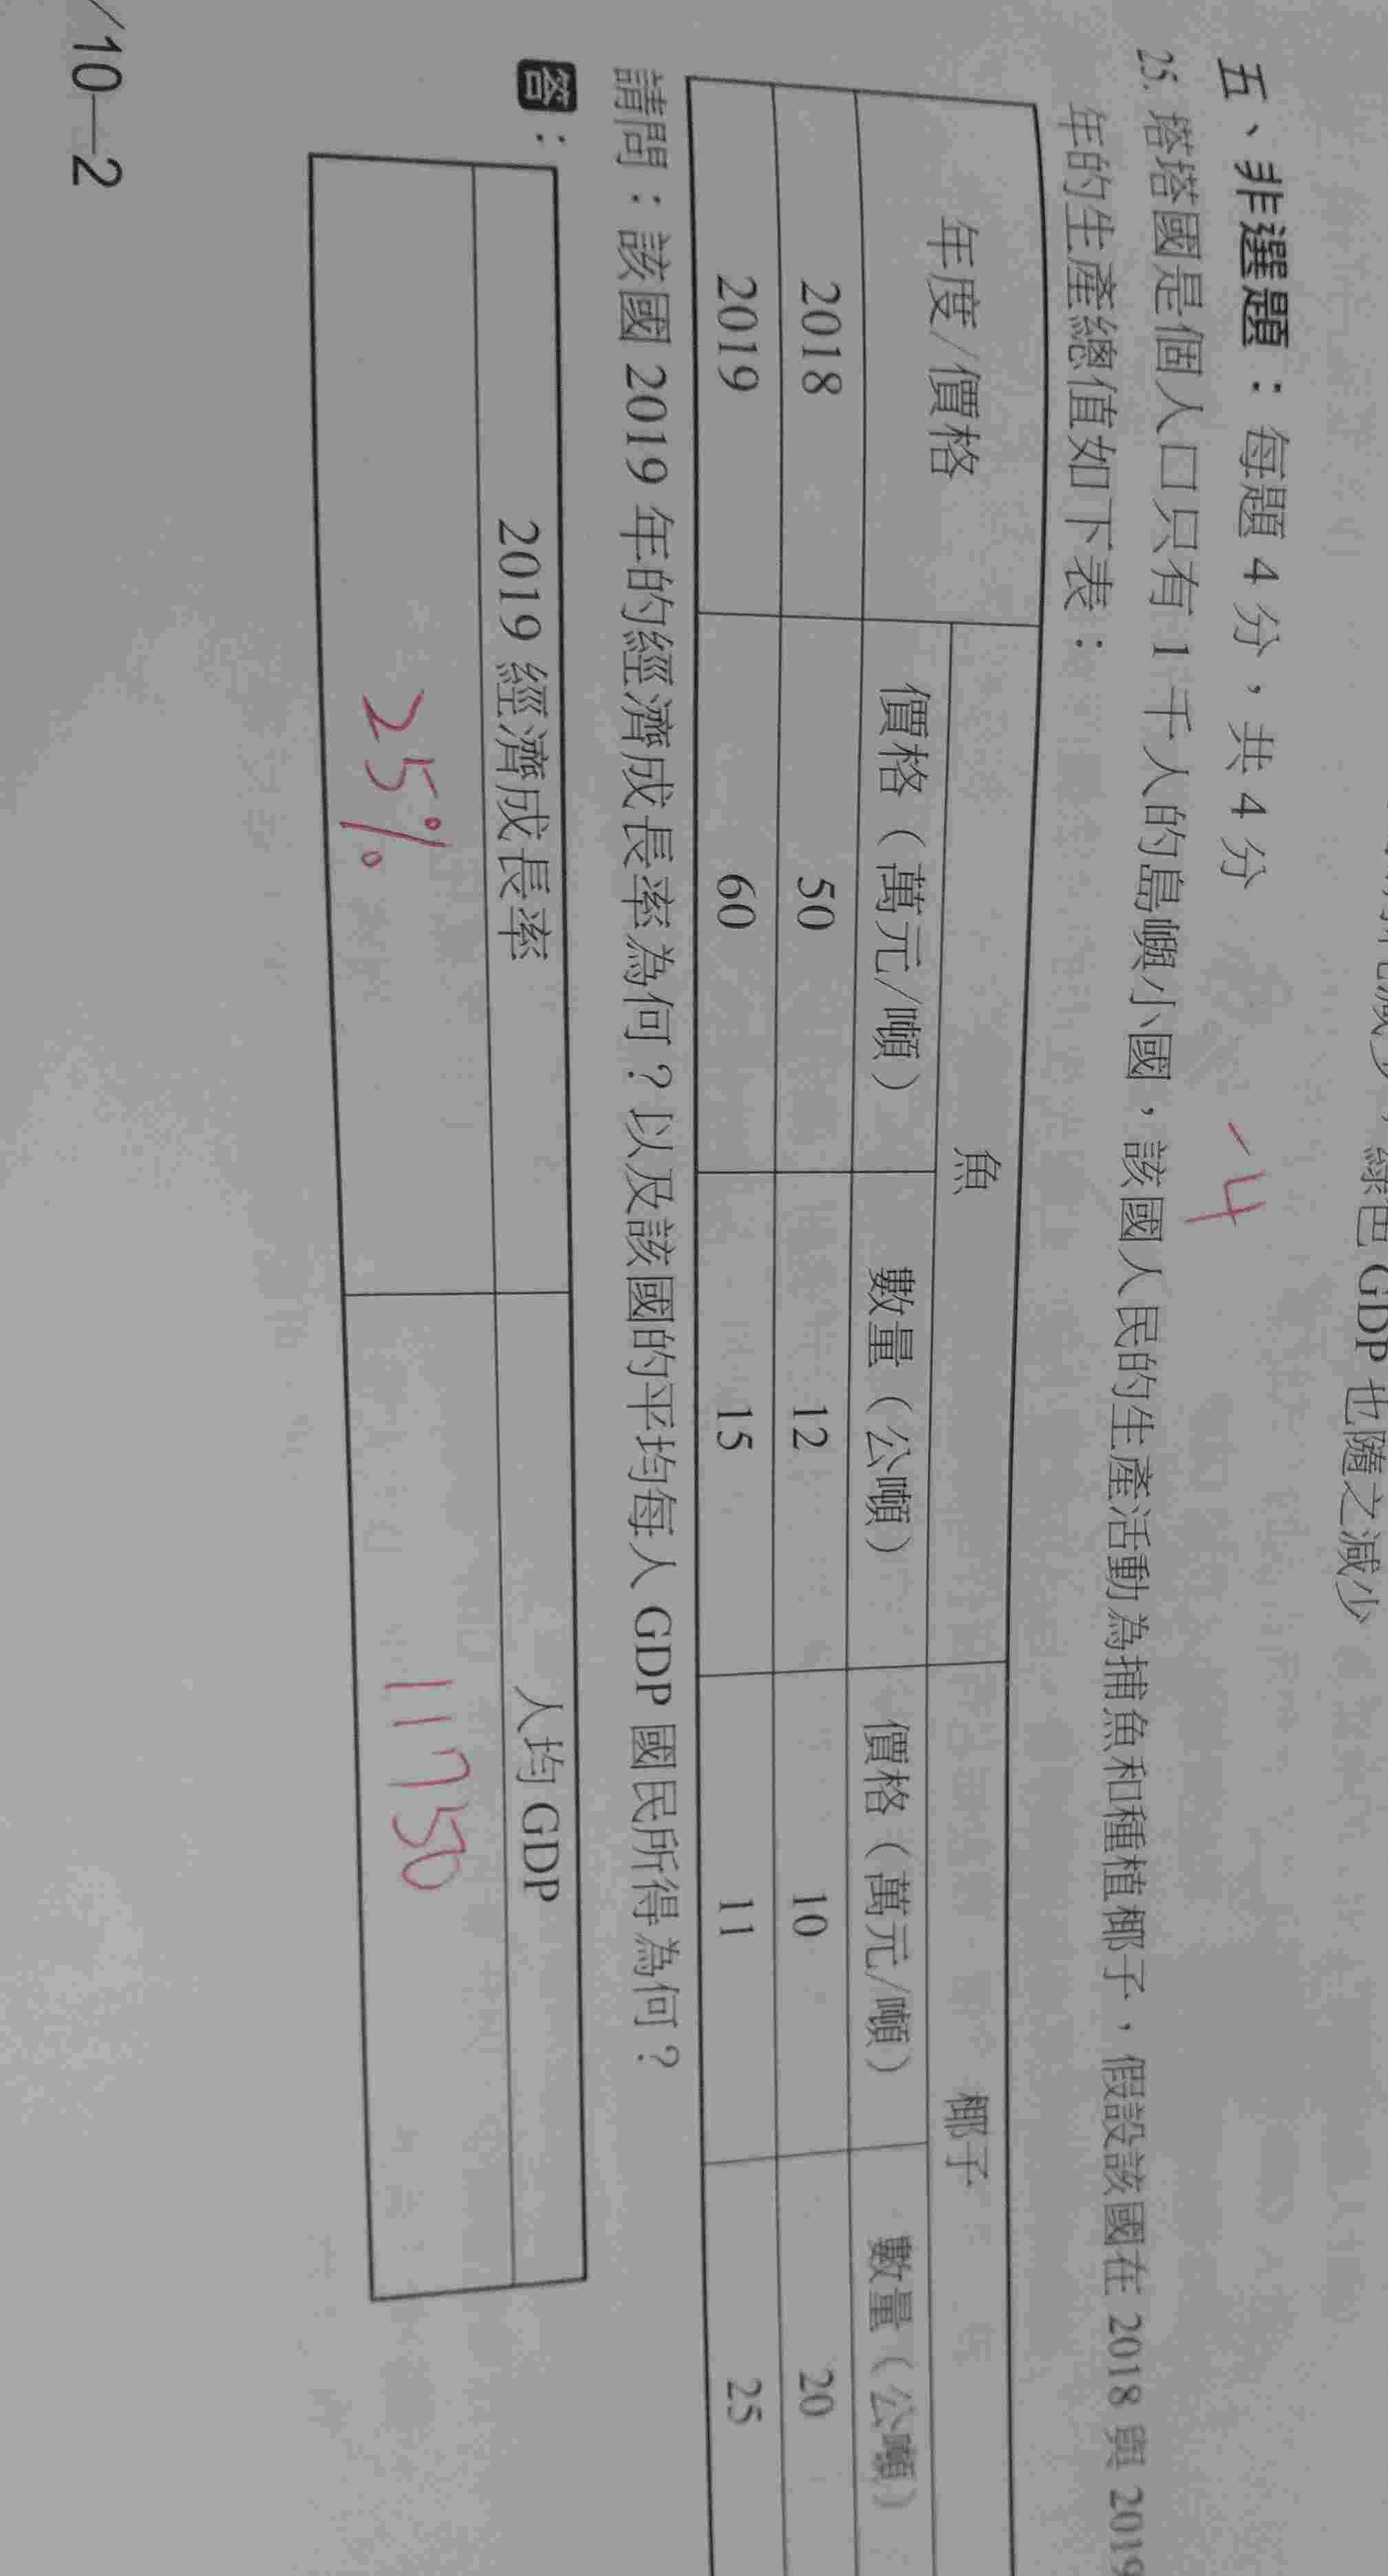 綠色 GDP 也隨之減少
五、非選題：每題 4 分，共 4 分
-4
25. 塔塔國是個人口只有 1 千人的島嶼小國，該國人民的生產活動為捕魚和種植椰子，假設該國在 2018 與 2019
年的生產總值如下表：
年度/價格 魚 椰子
價格（萬元/噸） 數量（公噸） 價格（萬元/噸） 數量（公噸）
2018 50 12 10 20
2019 60 15 11 25
請問：該國 2019 年的經濟成長率為何？以及該國的平均每人 GDP 國民所得為何？
答：
2019 經濟成長率 人均 GDP
25% 11750
/10—2